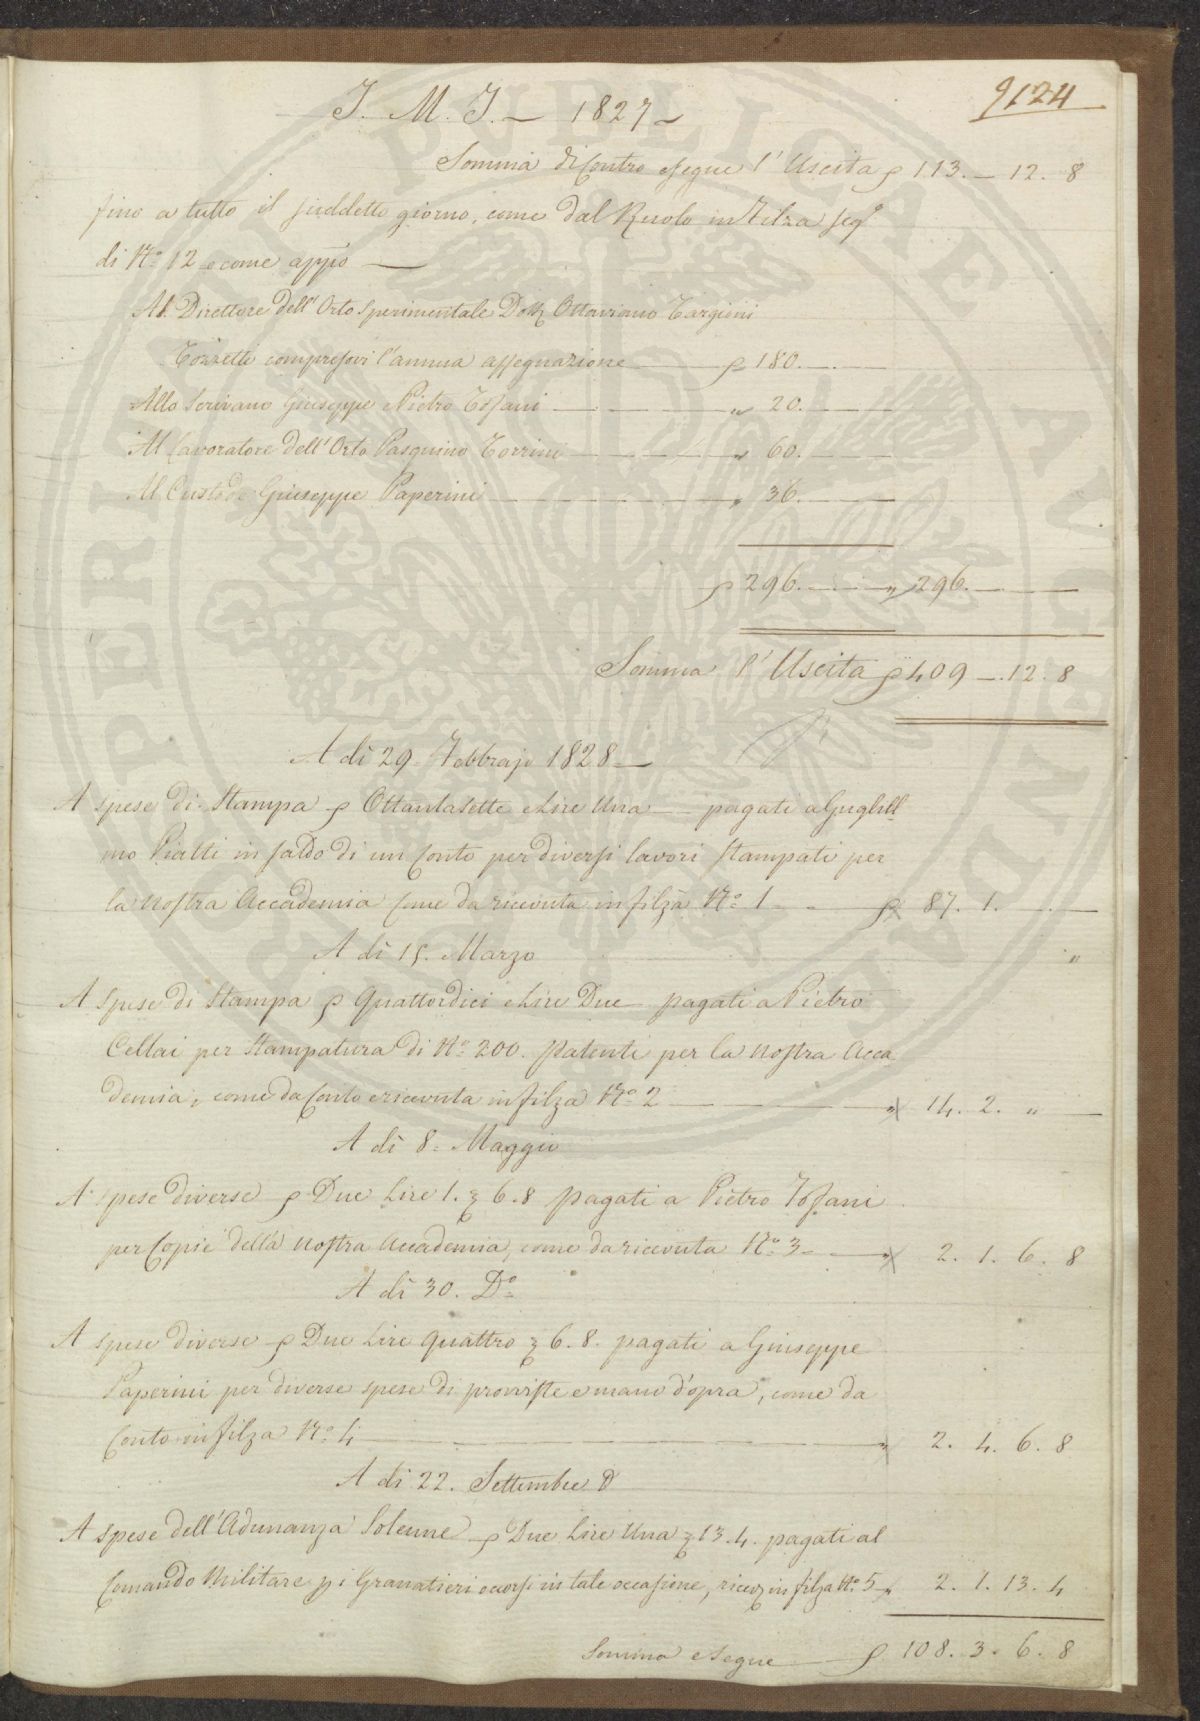 J. M. J. — 1827 —
9124
Somma di Contro e segue l'Uscita 113. — 12. 8
fino a tutto il suddetto giorno, come dal Ruolo in Filza seg.o
di N.o 12 e come app.o —
Al Direttore dell'Orto Sperimentale Dott. Ottaviano Targioni
Tozzetti compresovi l'annua assegnazione — 180. —
Allo Scrivano Giuseppe Pietro Tofani — " 20. —
Al Lavoratore dell'Orto Pasquino Torrini — " 60. —
Al Custode Giuseppe Paperini — " 36. —
296. — " 296. —
Somma l'Uscita 409 — 12. 8
A dì 29. Febbrajo 1828 —
A spese di Stampa Ottantasette e Lire Una — pagati a Guglill
mo Piatti in saldo di un Conto per diversi lavori Stampati per
la nostra Accademia come da ricevuta in filza N.o 1 — 87. 1. —
A dì 15. Marzo
"
A Spese di Stampa Quattordici e Lire Due — pagati a Pietro
Cellai per Stampatura di N.o 200. patenti per la nostra Acca
demia, come da Conto e ricevuta in filza N.o 2 — " 14. 2. " —
A dì 8. Maggio
A spese diverse Due Lire 1. 6. 8 pagati a Pietro Tofani
per Copie della nostra Accademia, come da ricevuta N.o 3 — " 2. 1. 6. 8
A dì 30. D.o
A spese diverse Due Lire quattro 6. 8. pagati a Giuseppe
Paperini per diverse spese di provviste e mano d'opra, come da
Conto in filza N.o 4 — " 2. 4. 6. 8
A dì 22. Settembre D
A spese dell'Adunanza Solenne Due Lire Una 13. 4. pagati al
Comando Militare p i Granatieri occorsi in tale occasione, ricev in filza N.o 5 " 2. 1. 13. 4
Somma e Segue — 108. 3. 6. 8